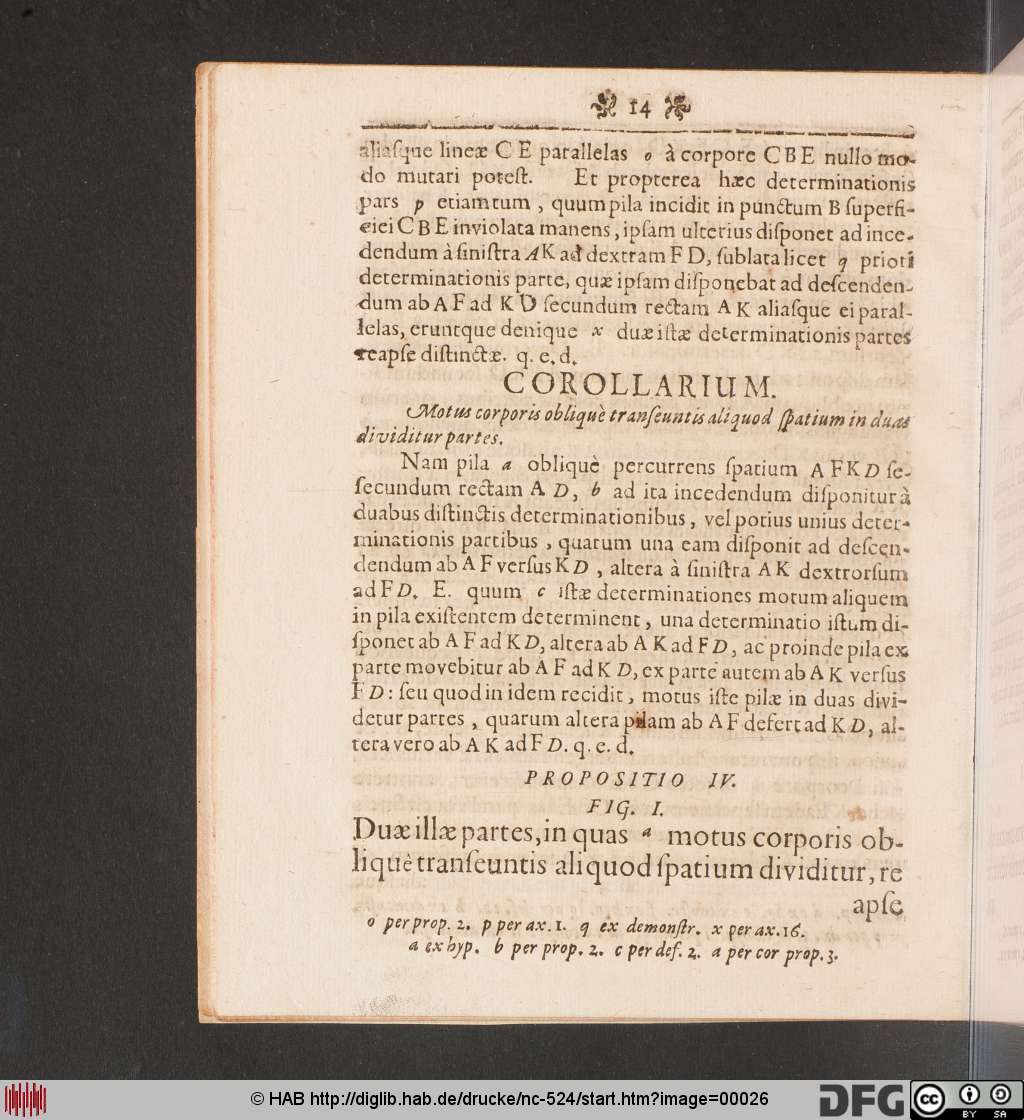 14
aliaſque lineæ C E parallelas o à corpore C B E nullo mo-
do mutari poteſt. Et propterea hæc determinationis
pars p etiamtum, quum pila incidit in punctum B ſuperfi-
ciei C B E inviolata manens, ipſam ulterius diſponet ad ince-
dendum à ſiniſtra A K ad dextram F D, ſublata licet q priori
determinationis parte, quæ ipſam diſponebat ad deſcenden-
dum ab A F ad K D ſecundum rectam A K aliaſque ei paral-
lelas, eruntque denique x duæ iſtæ determinationis partes
reapſe diſtinctæ. q. e. d.
COROLLARIUM.
Motus corporis obliquè tranſeuntis aliquod ſpatium in duas
dividitur partes.
Nam pila a obliquè percurrens ſpatium A F K D ſe-
ſecundum rectam A D, b ad ita incedendum diſponitur à
duabus diſtinctis determinationibus, vel potius unius deter-
minationis partibus, quarum una eam diſponit ad deſcen-
dendum ab A F verſus K D, altera à ſiniſtra A K dextrorſum
ad F D. E. quum c iſtæ determinationes motum aliquem
in pila exiſtentem determinent, una determinatio iſtum di-
ſponet ab A F ad K D, altera ab A K ad F D, ac proinde pila ex
parte movebitur ab A F ad K D, ex parte autem ab A K verſus
F D: ſeu quod in idem recidit, motus iſte pilæ in duas divi-
detur partes, quarum altera pilam ab A F defert ad K D, al-
tera vero ab A K ad F D. q. e. d.
PROPOSITIO IV.
FIG. I.
Duæ illæ partes, in quas a motus corporis ob-
liquè tranſeuntis aliquod ſpatium dividitur, re
apſe
o per prop. 2. p per ax. 1. q ex demonſtr. x per ax. 16.
a ex hyp. b per prop. 2. c per def. 2. a per cor prop. 3.
© HAB http://diglib.hab.de/drucke/nc-524/start.htm?image=00026
DFG
cc BY SA